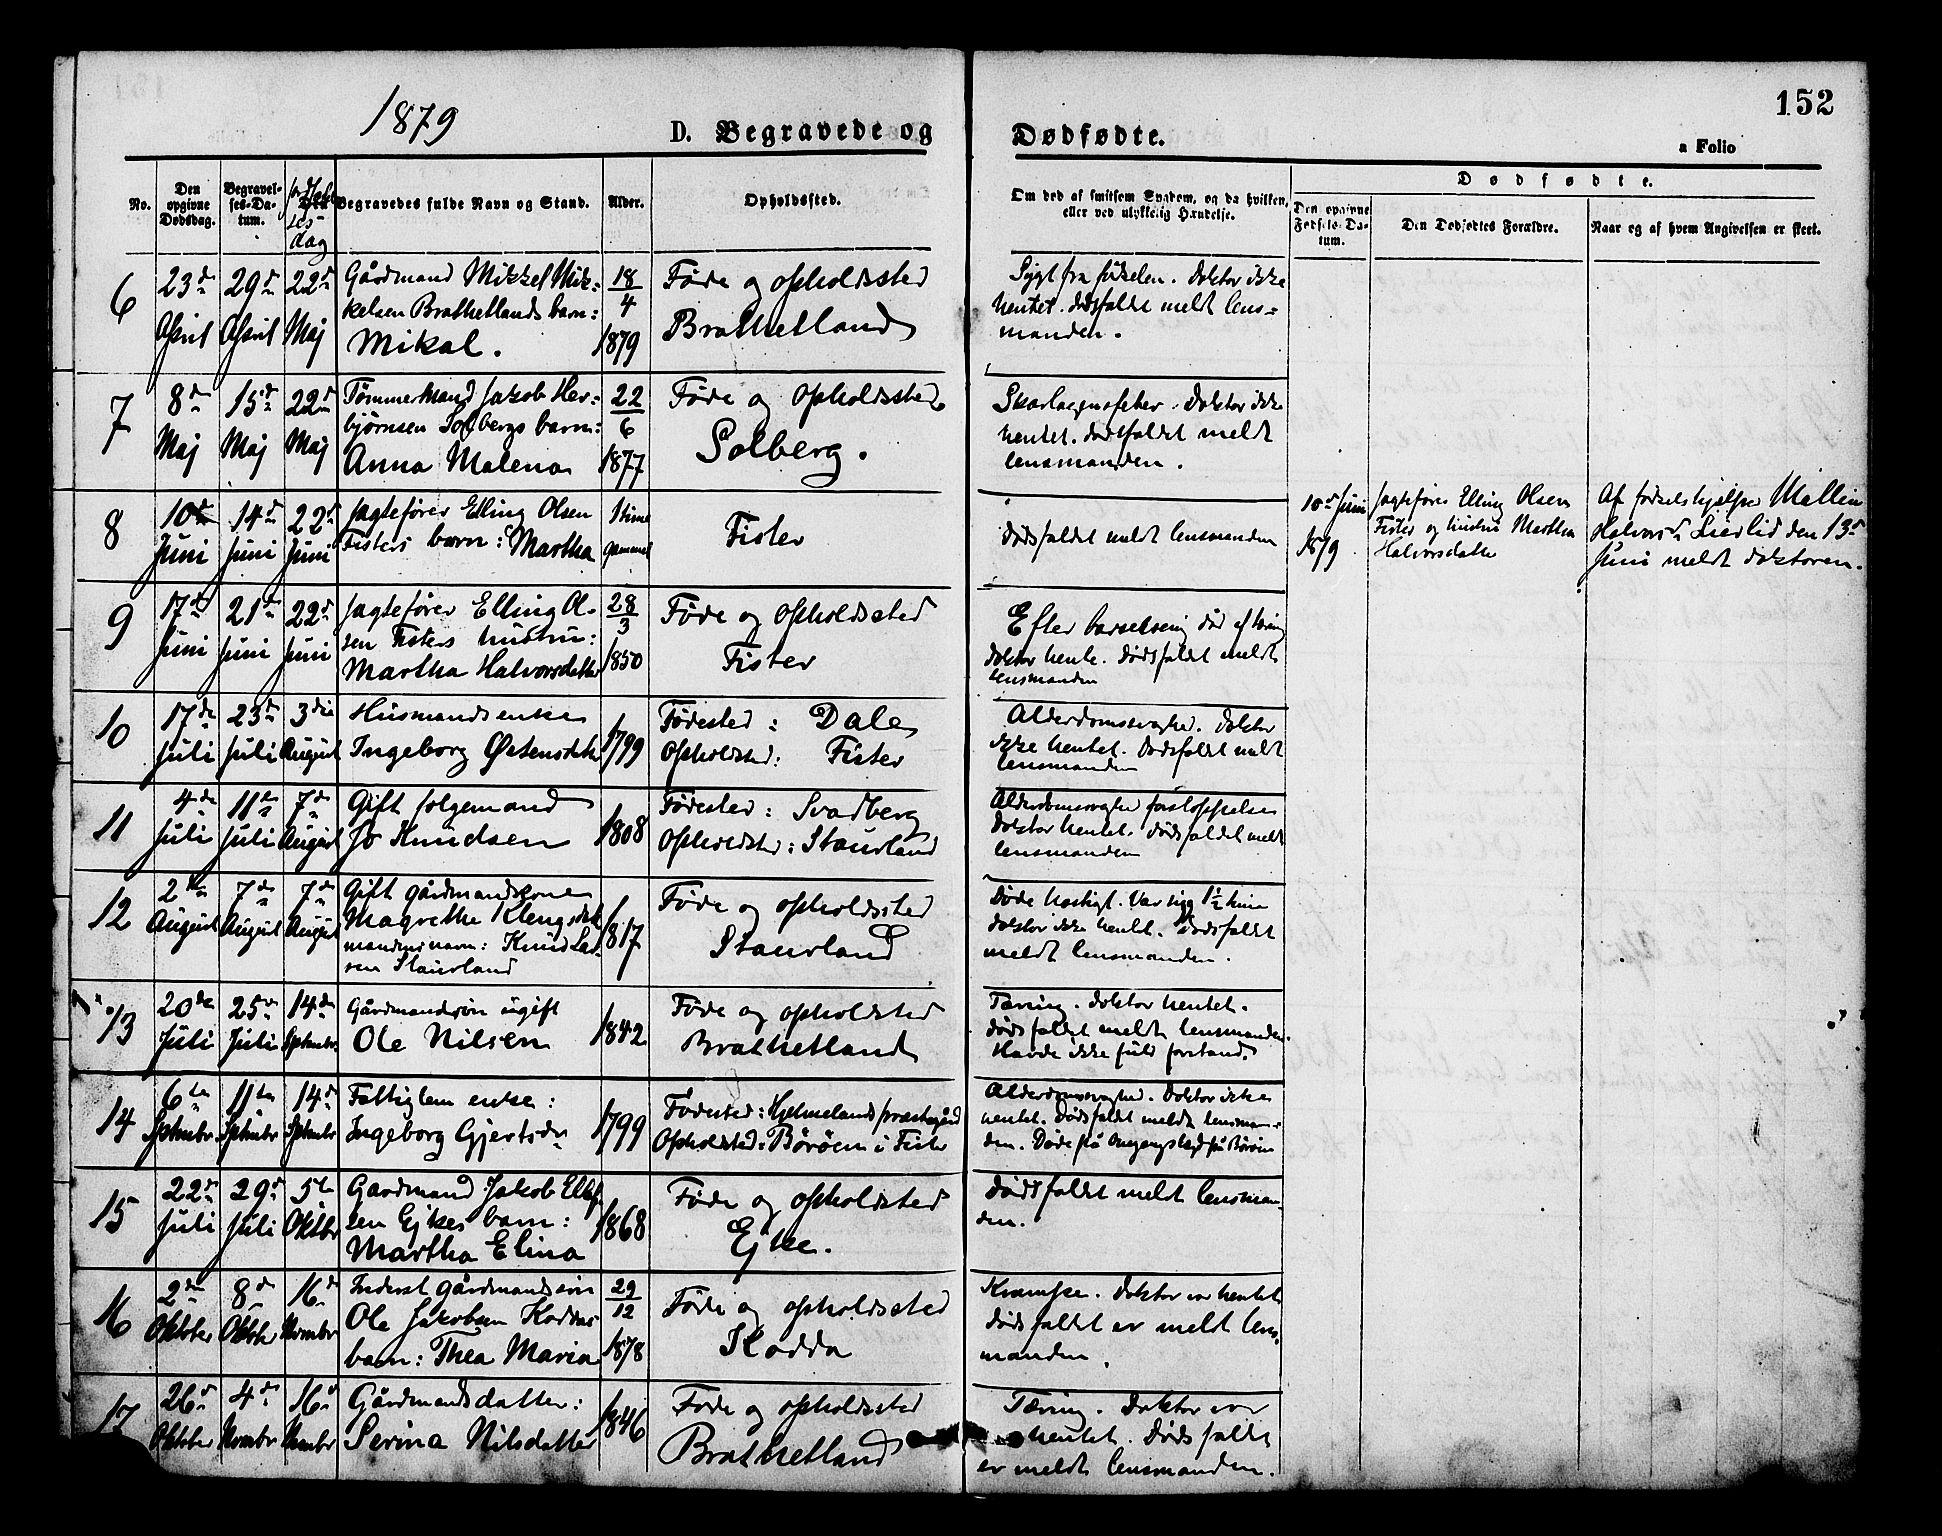 152
1879
D. Begravede og Dødfødte.
a Folio
No.
Den opgivne Dødsdag.
Begravelses-Datum.
dag
Begravedes fulde Navn og Stand.
Alder.
Opholdssted.
Om død af smitsom Sygdom, og da hvilken, eller ved ulykkelig Hændelse.
Dødfødte.
Den opgivne Fødsels-Datum.
Den Dødfødtes Forældre.
Naar og af hvem Angivelsen er skeet.
6
23d April
29d April
22d Maj
Gårdmand Mikkel Mik-
kelsen Brathetlands barn:
Mikal.
18/4 1879
Føde og opholdssted
Brathetland
Sygt fra fødselen. Doktor ikke
hentet. dødsfaldet meldt lens-
manden.
7
8d Maj
15d Maj
22d Maj
Tømmermand Jakob Her-
bjørnsen Solbergs barn:
Anna Malena
22/6 1877
Føde og opholdssted
Solberg.
Skarlagensfeber. Doktor ikke
hentet. dødsfaldet meldt
lensmanden.
8
10d Juni
14d Juni
22d Juni
Jagtefører Elling Olsen
Fisters barn: Martha
1 time gammel
Fister
dødsfaldet meldt lensmanden
10d Juni 1879
Jagtefører Elling Olsen
Fister og hustru Martha
Halvorsdatter
Af fødselshjælper Mallin
Halvorsd Lierlid den 13d
Juni meldt doktoren.
9
17d Juni
21d Juni
22d Juni
Jagtefører Elling Ol-
sen Fisters hustru:
Martha Halvorsdatter
28/3 1850
Føde og opholdssted
Fister
Efter barselseng død af tæring
doktor hente. Dødsfaldet meldt
lensmanden
10
17de Juli
23d Juli
3die August
Husmandsenke
Ingeborg Østensdatter
1799
Fødested: Dale
Opholdsted: Fister
Alderdomssvaghed. Doktor
ikke hentet. Dødsfaldet meldt
lensmanden
11
4de Juli
11te Juli
7d August
Gift følgemand
Jo Knudsen
1808
Fødested: Svadberg
Opholdsted: Staurland
Alderdomssvaghed forstoppelse
Doktor hentet. dødsfaldet meldt
lensmanden
12
2den August
7de August
7de August
Gift gårdmandskone
Magrethe Klengsdatt
mandens navn: Knud Las-
sen Staurland
1817
Føde og opholdssted
Staurland
Døde hastigt. Var syg 1½ time
doktor ikke hentet. Dødsfaldet
meldt lensmanden.
13
20de Juli
25de Juli
14de Septmbr
Gårdmandssøn ugift
Ole Nilsen
1842
Føde og opholdsted
Brathetland
Tæring. Doktor hentet.
dødsfaldet meldt lensmanden.
Havde ikke fuld forstand.
14
6te Septmbr
11te Septmbr
14d Septmbr
Fattiglem enke:
Ingeborg Gjertsdr
1799
Fødested: Hjelmelands præstegård
Opholdsted: Børøen i Fister
Alderdomssvaghed. Doktor ikke
hentet. Dødsfaldet meldt lensman-
den. Døde på Omgangslægd på Børøen
15
22d Juli
29d Juli
5te Oktbr
Gardmand Jakob Ellef-
sen Ejkes barn:
Martha Elina
1868
Føde og opholdsted
Ejke.
Dødsfaldet meldt lensman-
den.
16
2den Oktober
8d Oktbr
16d Novmbr
Inderst gårdmandssøn
Ole Jakobsen Koddas
barn: Thea Maria
29/12 1878
Føde og opholdssted
Kodda
Krampe. Doktor var hentet
dødsfaldet er meldt lens-
manden.
17
26d Oktober
4de Novmbr
16d Novmbr
Gårdmandsdatter:
Serina Nilsdatter
1846
Føde og opholdssted
Brathetland
Tæring. Doktor var
hentet. Dødsfaldt
er meldt lensmanden.